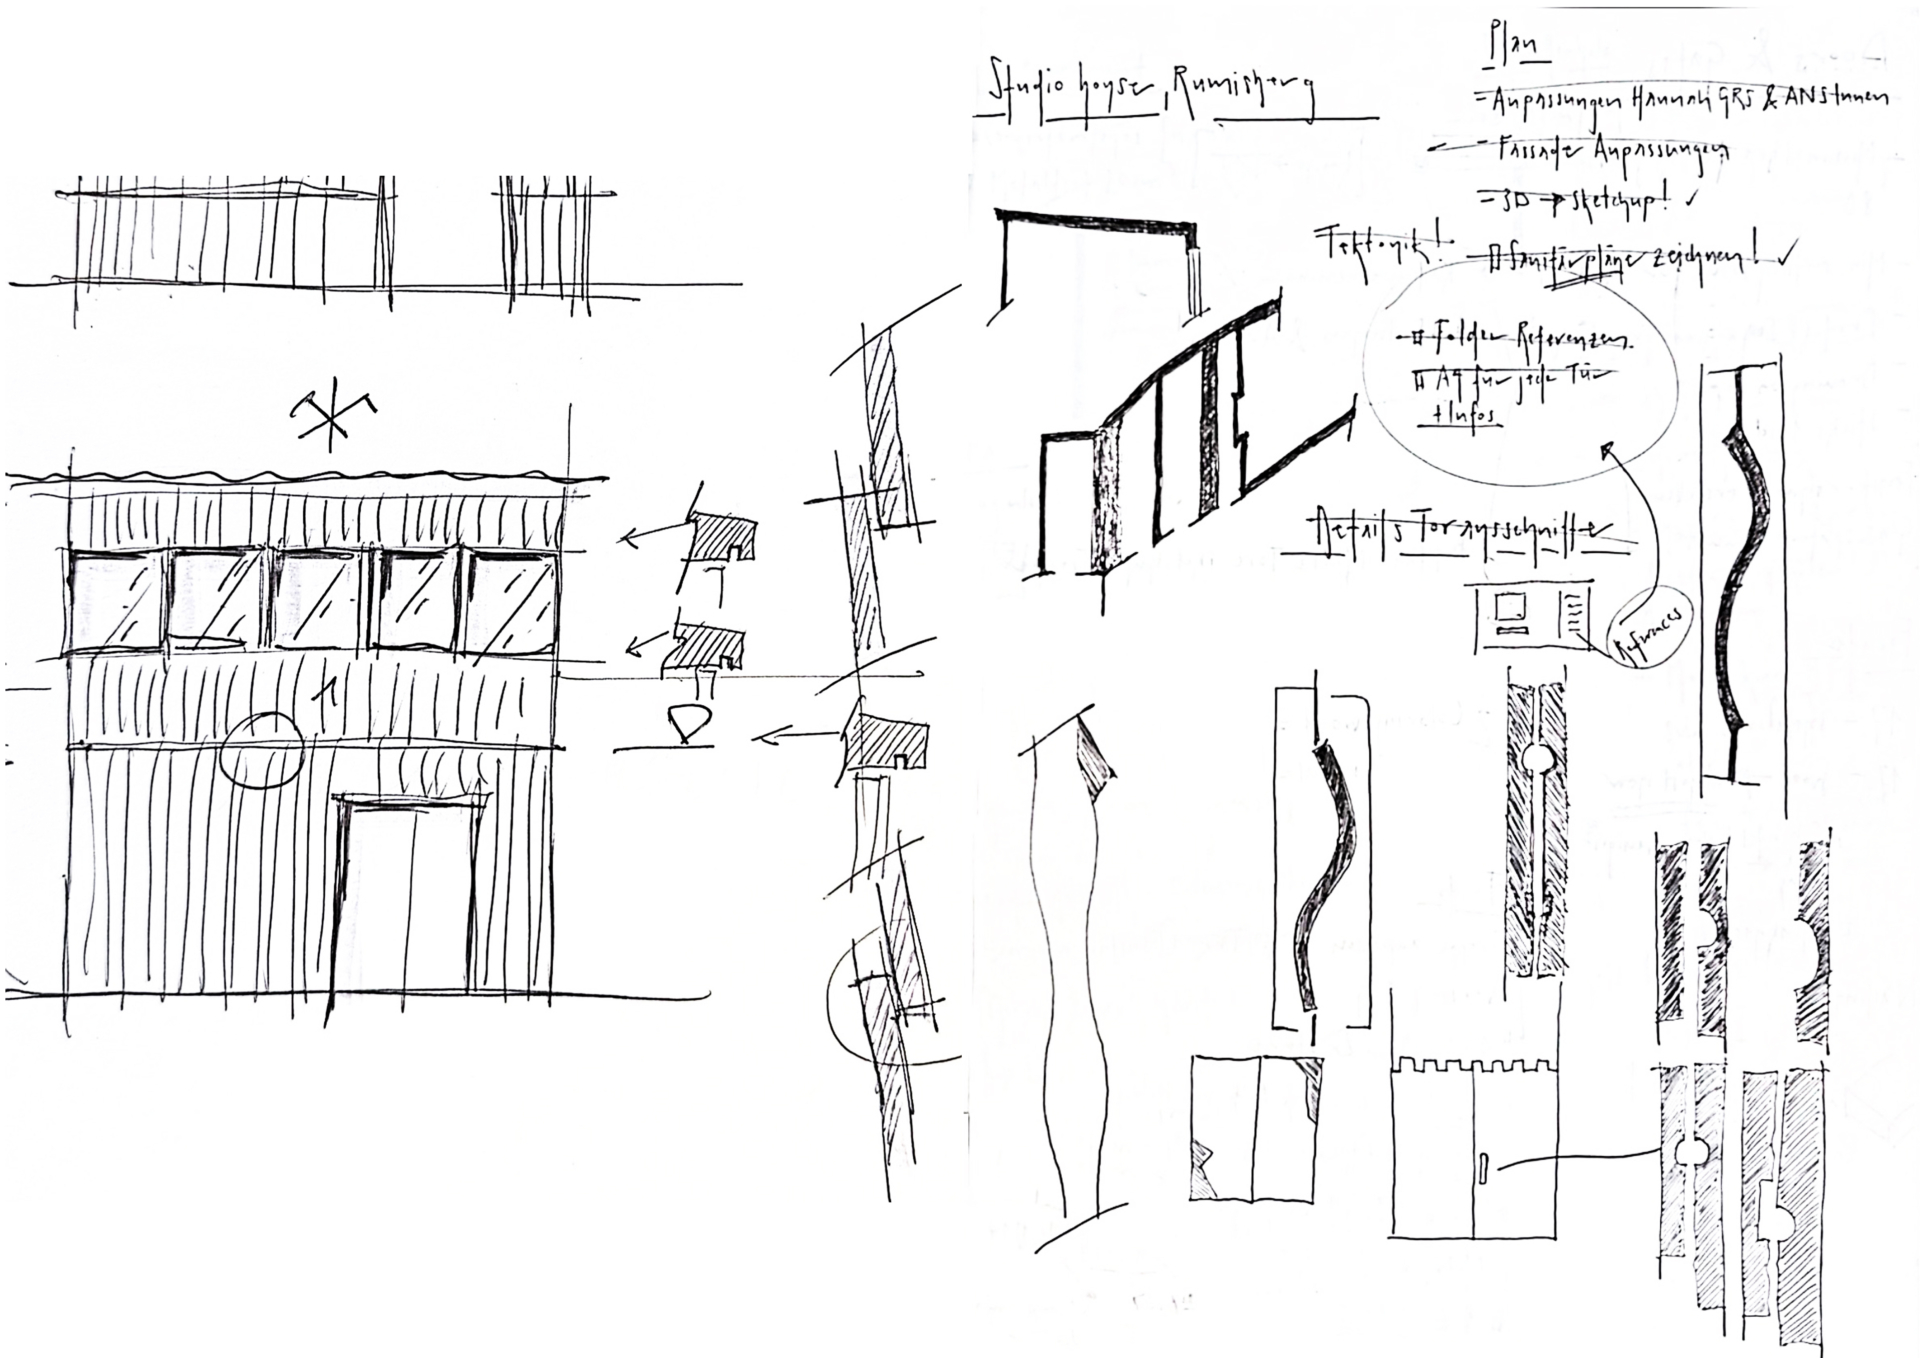 Studio house, Rumisberg
Plan
- Anpassungen Hannah GRS & ANSInnen
- Fassade Anpassungen
- 3D → Sketchup! ✓
Tektonik!
Sanitärpläne zeichnen! ✓
Folder Referenzen.
A4 für jede Tür
+ Infos
Details Torausschnitte
Refernces